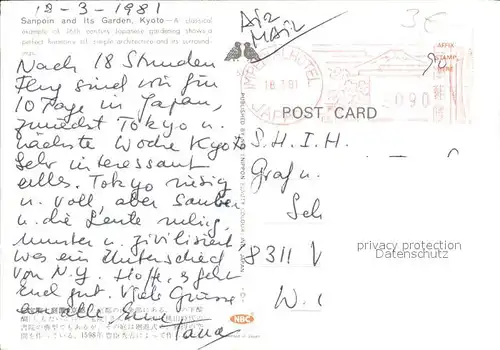 18-3-1981
Sanpoin and Its Garden, Kyoto — A classical
example of 16th century Japanese gardening shows a
perfect harmony of simple architecture and its surround-
ings.
Nach 18 Stunden
Flug sind wir für
10 Tage in Japan,
zunächst Tokyo u.
nächste Woche Kyoto
Sehr interessant
alles. Tokyo riesig
u. voll, aber sauber
u. die Leute ruhig,
munter u. zivilisiert,
was ein Unterschied
von N.Y. Hoffe, es geht
Euch gut. Viele Grüsse
an alle, Eure
Tana
Air
Mail
3€
AFFIX
STAMP
HERE
IMPERIAL HOTEL
18.3.81
JAPAN
090
POST CARD
S.H.I.H.
Graf u.
Sch
8311 V
W.
privacy protection
Datenschutz
NBC